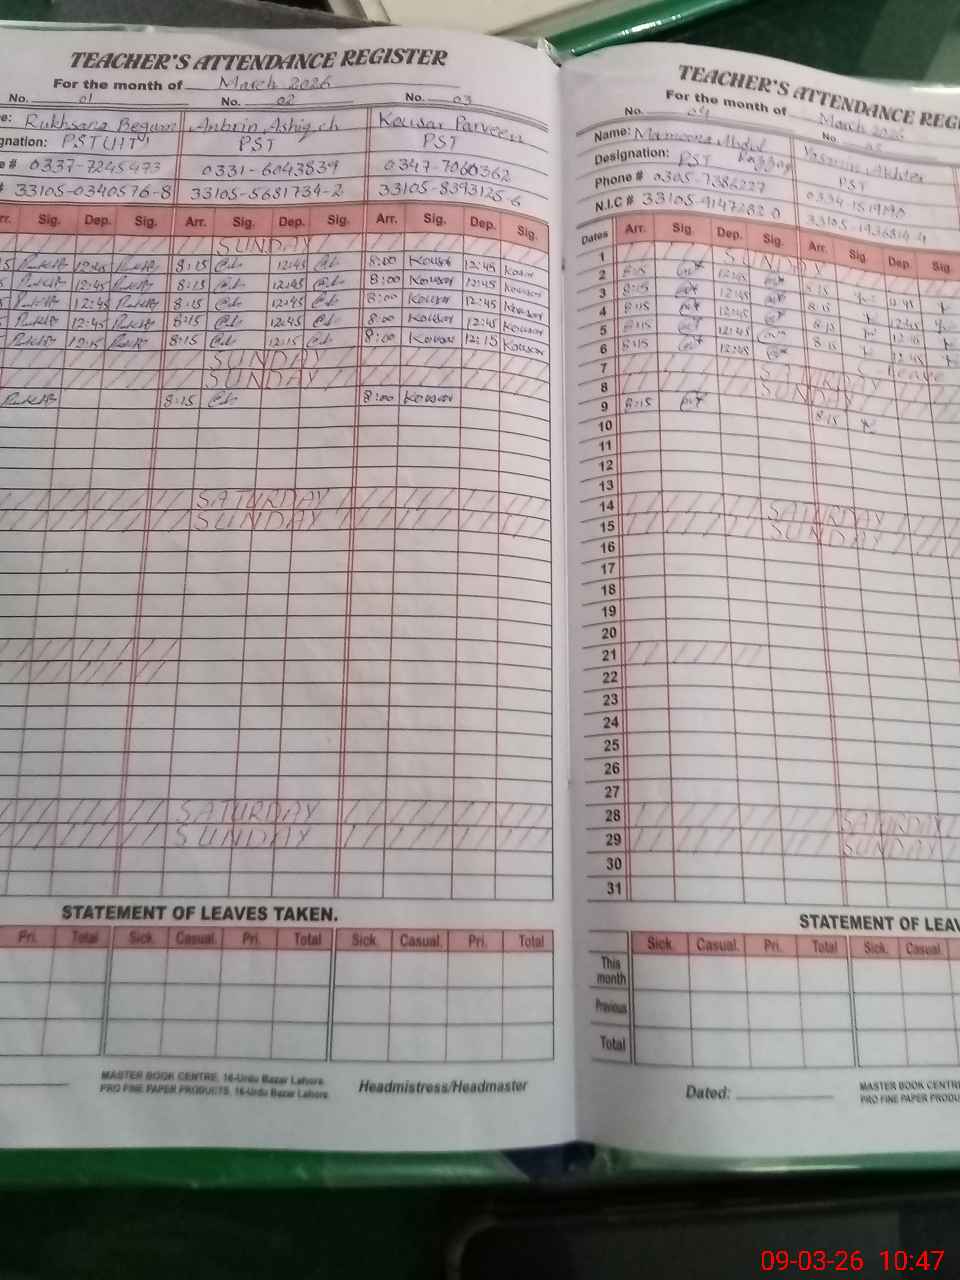 TEACHER'S ATTENDANCE REGISTER
For the month of March 2026
No. 01 No. 02 No. 03
Rukhsana Begum Anbrin Ashiq Kousar Parveen
gnation: PST PST PST
e # 0337-7245473 0331-6043839 0347-7060362
# 33105-0340576-8 33105-5681734-2 33105-8393125-6
rr. Sig. Dep. Sig. Arr. Sig. Dep. Sig. Arr. Sig. Dep. Sig.
SUNDAY
5 12:45 8:15 12:45 8:00 Kousar 12:45 Kousar
5 12:45 8:15 12:45 8:00 Kousar 12:45 Kousar
5 12:45 8:15 12:45 8:00 Kousar 12:45 Kousar
5 12:45 8:15 12:45 8:00 Kousar 12:45 Kousar
12:15 8:15 12:15 8:00 Kousar 12:15 Kousar
SUNDAY
SUNDAY
8:15 8:00 Kousar
SATURDAY
SUNDAY
SATURDAY
SUNDAY
STATEMENT OF LEAVES TAKEN.
Pri. Total Sick. Casual. Pri. Total Sick. Casual. Pri. Total
MASTER BOOK CENTRE, 16-Urdu Bazar Lahore.
PRO FINE PAPER PRODUCTS, 16-Urdu Bazar Lahore.
Headmistress/Headmaster
TEACHER'S ATTENDANCE REG
For the month of March 2026
No. 04 No. 05
Name: Yasmin Akhter
Designation: PST Razzaq PST
Phone # 0305-7386227
N.I.C # 33105-9147282-0 33105-1936814-4
Dates Arr. Sig. Dep. Sig. Arr. Sig. Dep. Sig.
1 SUNDAY
2 8:15 12:45 8:15 12:45
3 8:15 12:45 8:15 12:45
4 8:15 12:45 8:15 12:45
5 8:15 12:45 8:15 12:45
6 8:15 12:45 Leave
7 SATURDAY
8 SUNDAY
9 8:15 8:15
10
11
12
13
14 SATURDAY
15 SUNDAY
16
17
18
19
20
21
22
23
24
25
26
27
28 SATURDAY
29 SUNDAY
30
31
STATEMENT OF LEAV
Sick. Casual. Pri. Total Sick. Casual
This month
Previous
Total
Dated:
MASTER BOOK CENTRE
PRO FINE PAPER PRODU
09-03-26 10:47